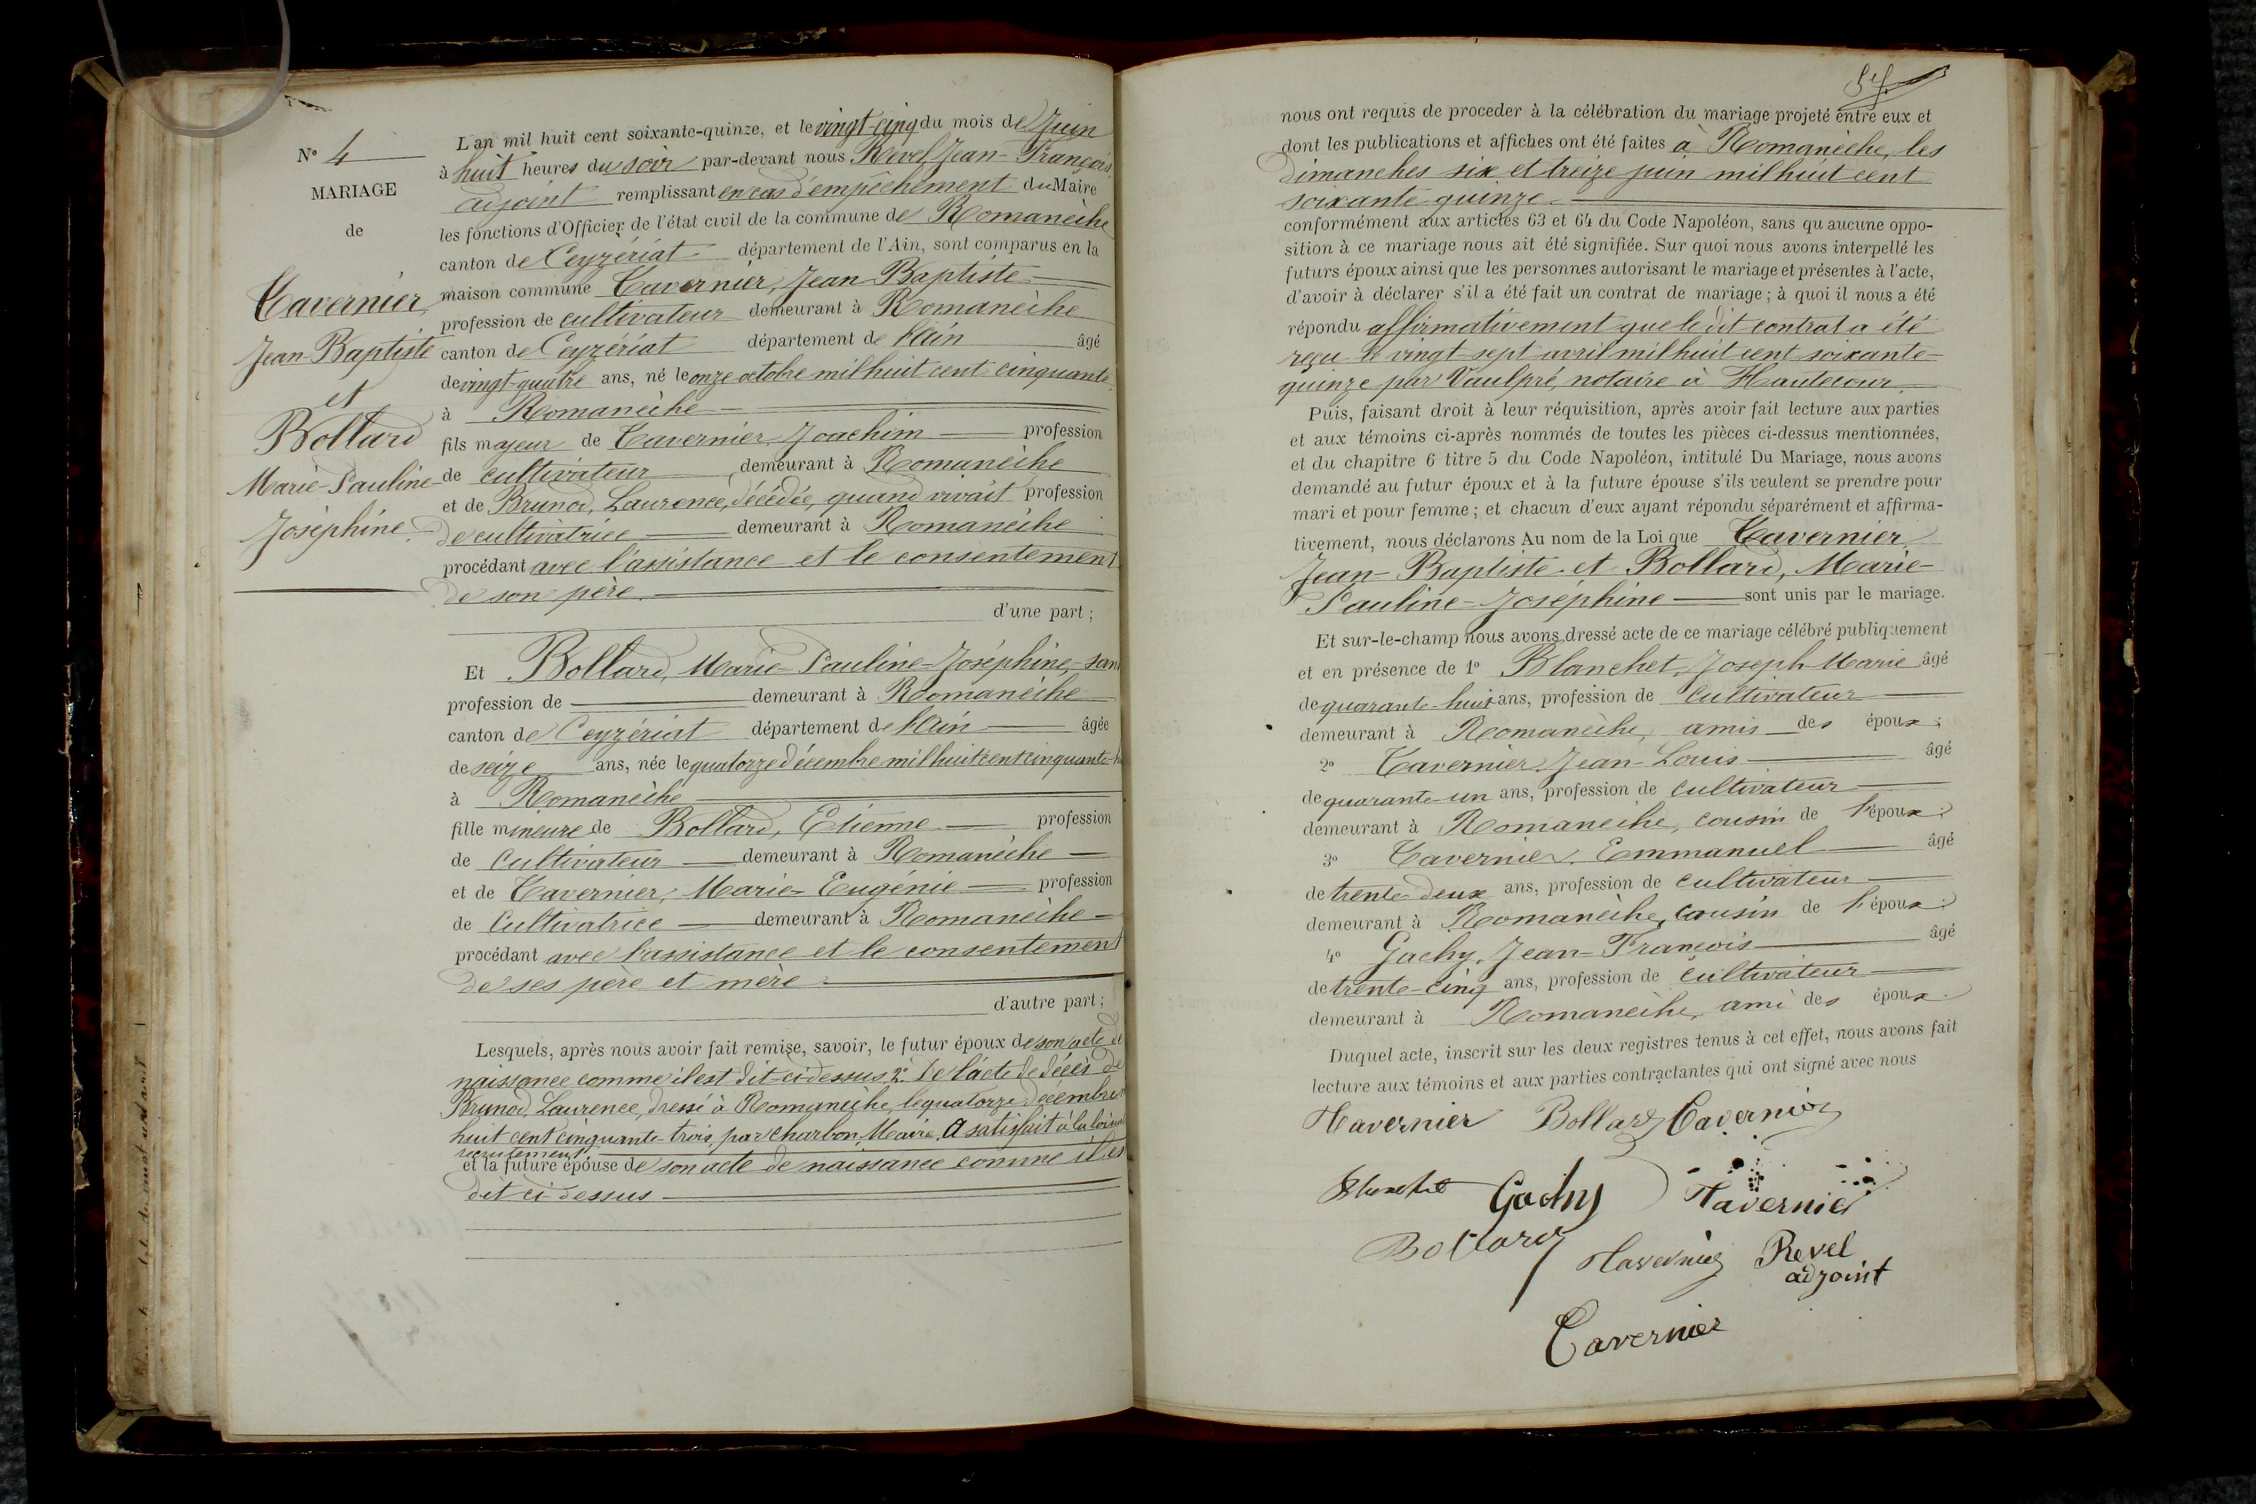 N° 4
MARIAGE
de
Tavernier,
Jean-Baptiste
et
Bollard
Marie-Pauline-
Joséphine.
L'an mil huit cent soixante-quinze, et le vingt-cinq du mois de Juin
à huit heures du soir par-devant nous Revel, Jean-François,
adjoint remplissant en cas d'empêchement du Maire
les fonctions d'Officier de l'état civil de la commune de Romanèche
canton de Ceyzériat département de l'Ain, sont comparus en la
maison commune Tavernier, Jean-Baptiste
profession de cultivateur demeurant à Romanèche
canton de Ceyzériat département de l'Ain âgé
de vingt-quatre ans, né le onze octobre mil huit cent cinquante
à Romanèche
fils majeur de Tavernier, Joachim profession
de cultivateur demeurant à Romanèche
et de Brunod, Laurence, décédée, quand vivait profession
de cultivatrice demeurant à Romanèche
procédant avec l'assistance et le consentement
de son père.
d'une part ;
Et Bollard, Marie-Pauline-Joséphine, sans
profession de demeurant à Romanèche
canton de Ceyzériat département de l'Ain âgée
de seize ans, née le quatorze décembre mil huit cent cinquante-
à Romanèche
fille mineure de Bollard, Etienne profession
de cultivateur demeurant à Romanèche
et de Tavernier, Marie-Eugénie profession
de Cultivatrice demeurant à Romanèche
procédant avec l'assistance et le consentement
de ses père et mère
d'autre part ;
Lesquels, après nous avoir fait remise, savoir, le futur époux de son acte de
naissance comme il est dit ci-dessus, 2° de l'acte de décès de
Brunod, Laurence, dressé à Romanèche, le quatorze décembre
huit cent cinquante-trois, par Charbon, Maire. A satisfait à la loi
recrutement
et la future épouse de son acte de naissance comme il est
dit ci dessus
nous ont requis de proceder à la célébration du mariage projeté entre eux et
dont les publications et affiches ont été faites à Romanèche, les
dimanches six et treize juin mil huit cent
soixante-quinze.
conformément aux articles 63 et 64 du Code Napoléon, sans qu'aucune oppo-
sition à ce mariage nous ait été signifiée. Sur quoi nous avons interpellé les
futurs époux ainsi que les personnes autorisant le mariage et présentes à l'acte,
d'avoir à déclarer s'il a été fait un contrat de mariage ; à quoi il nous a été
répondu affirmativement que le dit contrat a été
reçu le vingt-sept avril mil huit cent soixante-
quinze par Vaulpré, notaire à Hautecour
Puis, faisant droit à leur réquisition, après avoir fait lecture aux parties
et aux témoins ci-après nommés de toutes les pièces ci-dessus mentionnées,
et du chapitre 6 titre 5 du Code Napoléon, intitulé Du Mariage, nous avons
demandé au futur époux et à la future épouse s'ils veulent se prendre pour
mari et pour femme ; et chacun d'eux ayant répondu séparément et affirma-
tivement, nous déclarons Au nom de la Loi que Tavernier,
Jean-Baptiste et Bollard, Marie-
Pauline-Joséphine sont unis par le mariage.
Et sur-le-champ nous avons dressé acte de ce mariage célébré publiquement
et en présence de 1° Blanchet, Joseph-Marie âgé
de quarante-huit ans, profession de cultivateur
demeurant à Romanèche, amis des époux ;
2° Tavernier, Jean-Louis âgé
de quarante-un ans, profession de cultivateur
demeurant à Romanèche, cousin de l'époux ;
3° Tavernier, Emmanuel âgé
de trente-deux ans, profession de cultivateur
demeurant à Romanèche, cousin de l'époux ;
4° Gachy, Jean-François âgé
de trente-cinq ans, profession de cultivateur
demeurant à Romanèche, ami des époux.
Duquel acte, inscrit sur les deux registres tenus à cet effet, nous avons fait
lecture aux témoins et aux parties contractantes qui ont signé avec nous
Tavernier Bollard Tavernier
Blanchet Gachy Tavernier
Bollard Tavernier Revel
adjoint
Tavernier